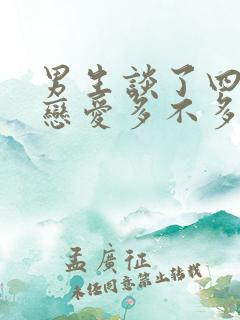 男生談了四
戀愛多不多
孟廣征
未经同意禁止转载